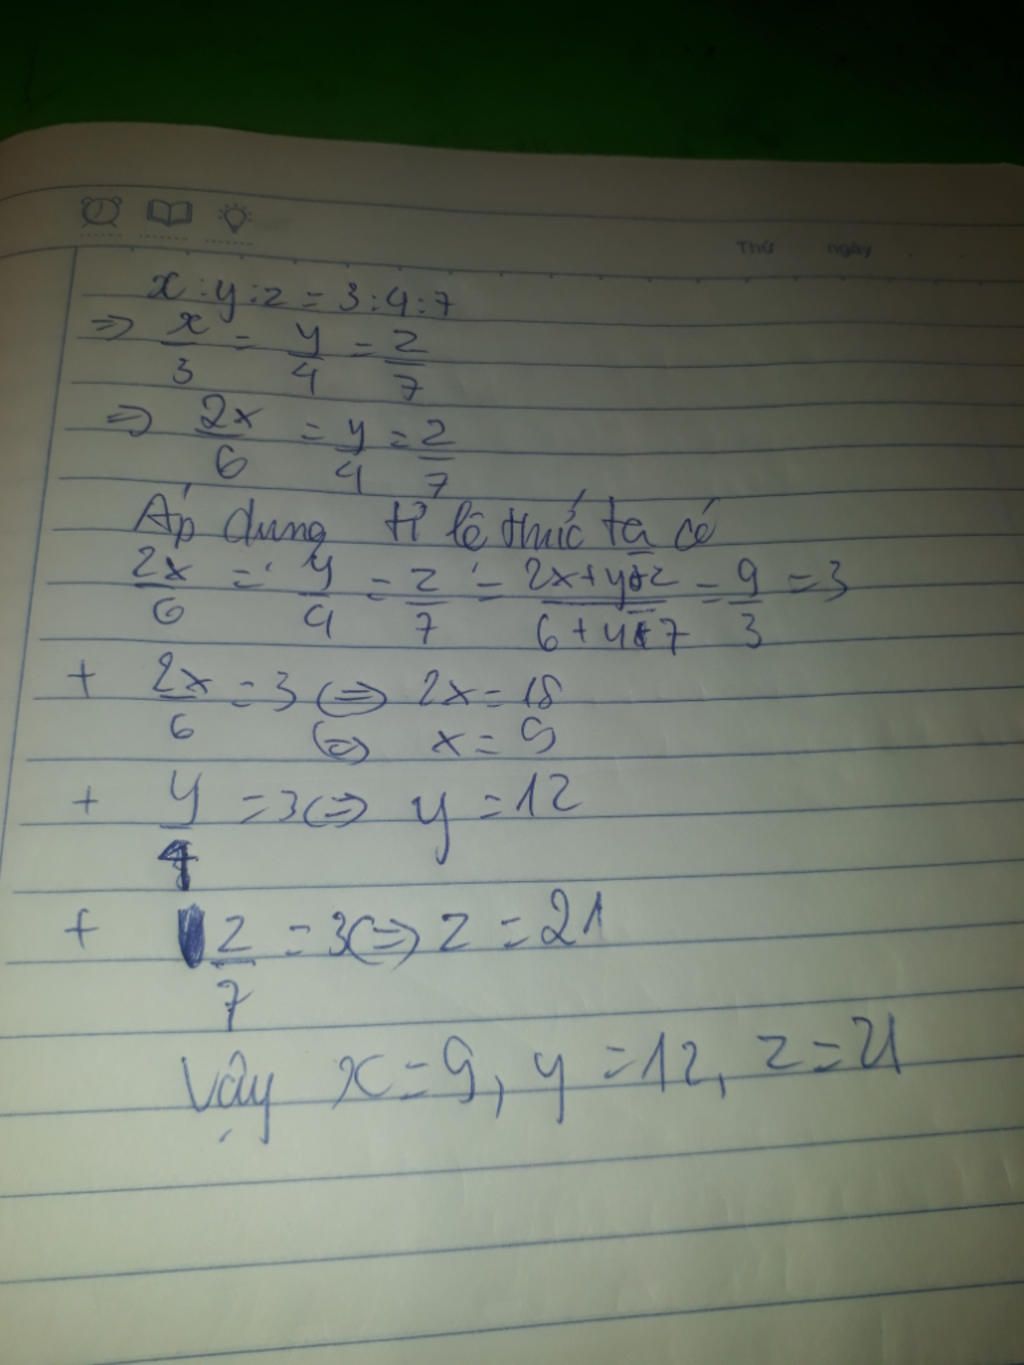 Thứ ngày
x : y : z = 3 : 4 : 7
=> x/3 = y/4 = z/7
=> 2x/6 = y/4 = z/7
Áp dung tỉ lê thức ta có
2x/6 = y/4 = z/7 = (2x+y-z)/(6+4-7) = 9/3 = 3
+ 2x/6 = 3 <=> 2x = 18
<=> x = 9
+ y/4 = 3 <=> y = 12
+ z/7 = 3 <=> z = 21
Vậy x = 9, y = 12, z = 21